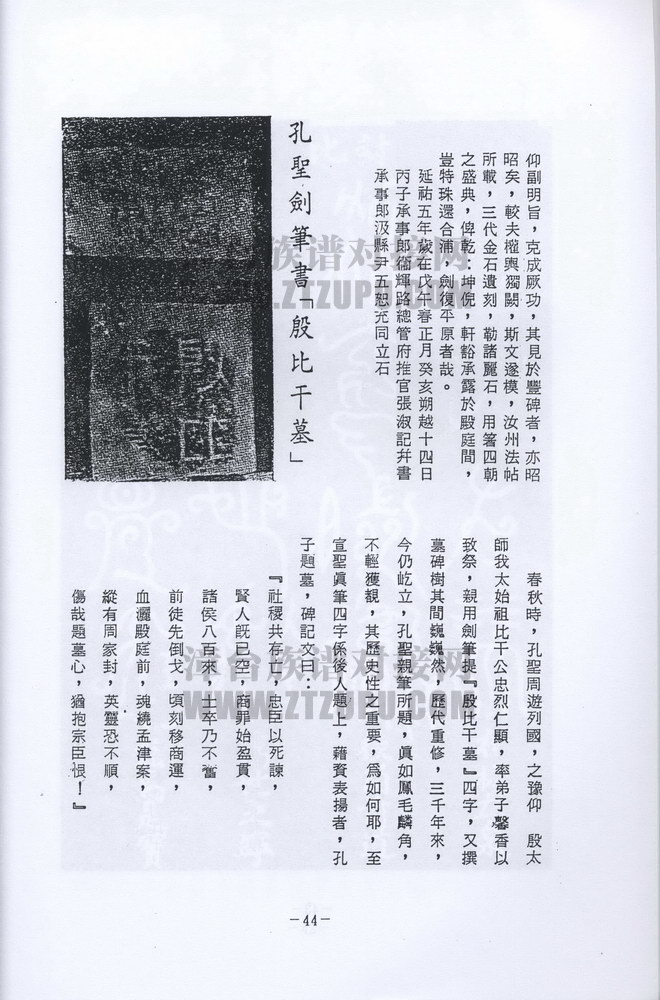 仰副明旨，克成厥功，其見於豐碑者，亦昭
昭矣，較夫檻輿獨闕，斯文遂模，汝州法帖
所載，三代金石遺刻，勒諸麗石，用箸四朝
之盛典，俾乾：坤倪，軒豁承露於殿庭間，
豈特珠還合浦，劍復平原者哉。
延祐五年歲在戊午春正月癸亥朔越十四日
丙子承事郎衞輝路總管府推官張淑記幷書
承事郎汲縣尹五恕充同立石
孔聖劍筆書「殷比干墓」
春秋時，孔聖周遊列國，之豫仰　殷太
師我太始祖比干公忠烈仁顯，率弟子馨香以
致祭，親用劍筆提『殷比干墓』四字，又撰
墓碑樹其間巍巍然，歷代重修，三千年來，
今仍屹立，孔聖親筆所題，眞如鳳毛麟角，
不輕獲覩，其歷史性之重要，爲如何耶，至
宣聖眞筆四字係後人題上，藉資表揚者，孔
子題墓，碑記文曰：
『社稷共存亡，忠臣以死諫，
賢人旣已空，商罪始盈貫，
諸侯八百來，士卒乃不奮，
前徒先倒戈，頃刻移商運，
血灑殿庭前，魂繞孟津案，
縱有周家封，英靈恐不順，
傷哉題墓心，猶抱宗臣恨！』
漳台族谱对接网
WWW.ZTZUPU.COM
－44－